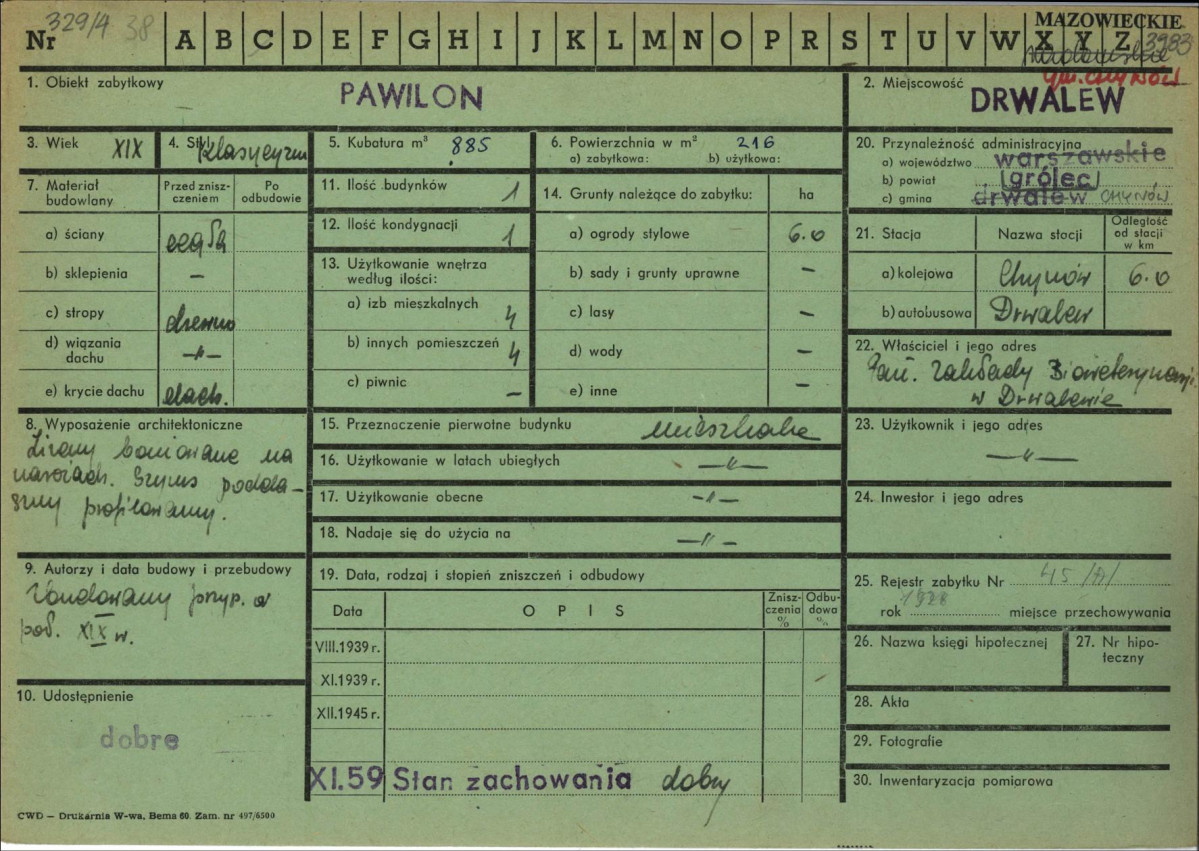 Nr 329/A 38 A B C D E F G H I J K L M N O P R S T U V W X Y Z 3983
MAZOWIECKIE
gm. CHYNÓW
1. Obiekt zabytkowy
PAWILON
2. Miejscowość
DRWALEW
3. Wiek XIX
4. Styl klasycyzm
5. Kubatura m³ 885
6. Powierzchnia w m² 216
a) zabytkowa: b) użytkowa:
20. Przynależność administracyjna
a) województwo warszawskie
b) powiat grólec
c) gmina drwalew CHYNÓW
7. Materiał budowlany
Przed znisz-
czeniem
Po
odbudowie
a) ściany cegła
b) sklepienia –
c) stropy drewno
d) wiązania
dachu –"–
e) krycie dachu dach.
11. Ilość budynków 1
12. Ilość kondygnacji 1
13. Użytkowanie wnętrza
według ilości:
a) izb mieszkalnych 4
b) innych pomieszczeń 4
c) piwnic –
14. Grunty należące do zabytku: ha
a) ogrody stylowe 6.0
b) sady i grunty uprawne –
c) lasy –
d) wody –
e) inne –
21. Stacja Nazwa stocji
Odległość
od stacji
w km
a) kolejowa Chynów 6.0
b) autobusowa Drwalew
22. Właściciel i jego adres
Pań. Zakłady
w Drwalewie
8. Wyposażenie architektoniczne
Ściany boniowane na
narożach. Gzyms podda-
szny profilowany.
15. Przeznaczenie pierwotne budynku mieszkalne
16. Użytkowanie w latach ubiegłych –"–
17. Użytkowanie obecne –"–
18. Nadaje się do użycia na –"–
23. Użytkownik i jego adres
–"–
24. Inwestor i jego adres
9. Autorzy i data budowy i przebudowy
Zbudowany przyp. w
poł. XIX w.
19. Data, rodzaj i stopień zniszczeń i odbudowy
Data O P I S
Znisz-
czenia
%
Odbu-
dowa
%
VIII.1939 r.
XI.1939 r.
XII.1945 r.
XI.59 Stan zachowania dobry
25. Rejestr zabytku Nr 45 /A/
rok 1928 miejsce przechowywania
26. Nazwa księgi hipotecznej
27. Nr hipo-
teczny
10. Udostępnienie
dobre
28. Akta
29. Fotografie
30. Inwentaryzacja pomiarowa
CWD — Drukarnia W-wa, Bema 60. Zam. nr 497/6500